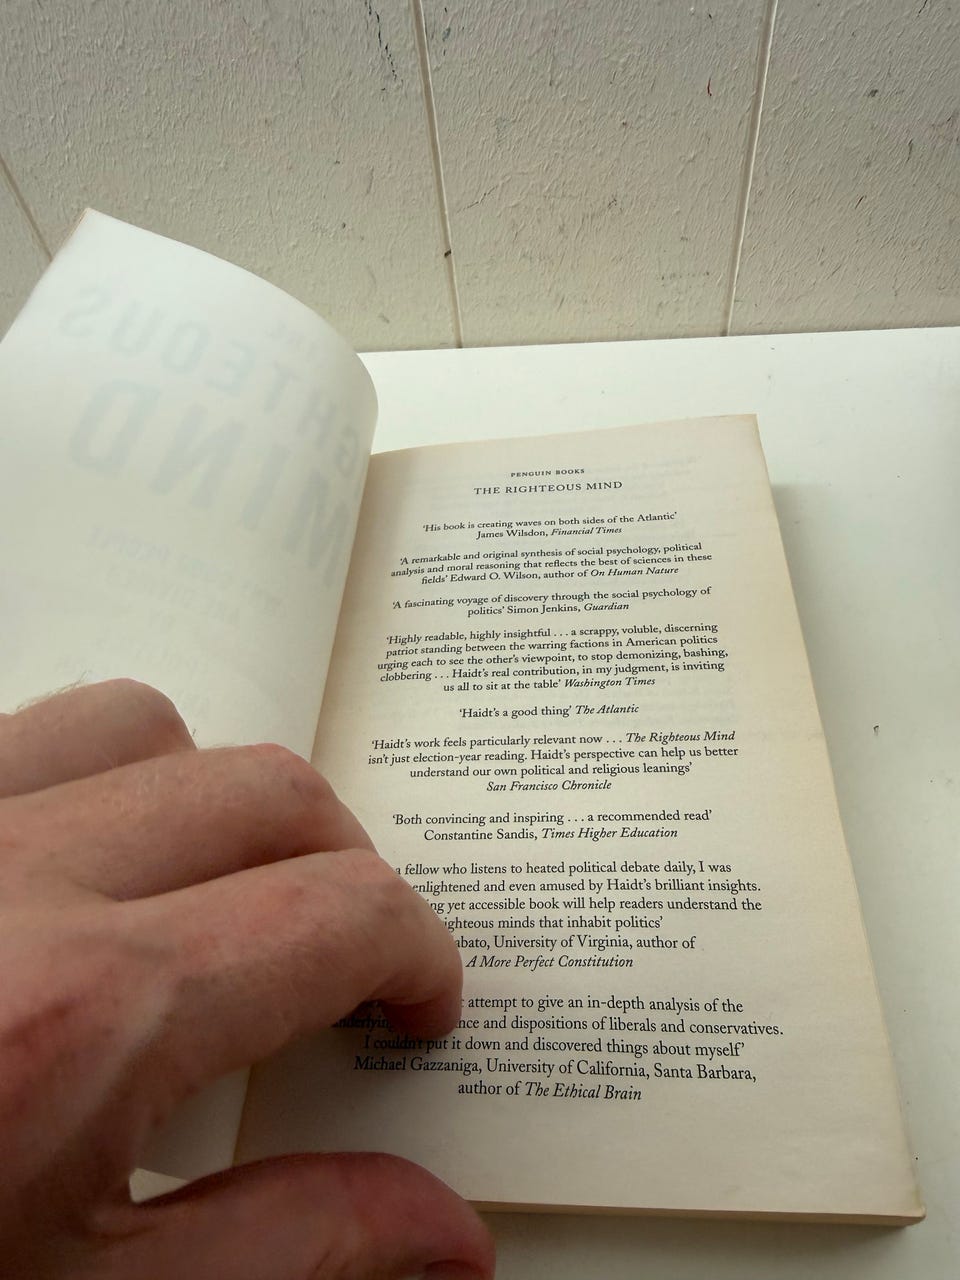 PENGUIN BOOKS
THE RIGHTEOUS MIND
‘His book is creating waves on both sides of the Atlantic’
James Wilsdon, Financial Times
‘A remarkable and original synthesis of social psychology, political
analysis and moral reasoning that reflects the best of sciences in these
fields’ Edward O. Wilson, author of On Human Nature
‘A fascinating voyage of discovery through the social psychology of
politics’ Simon Jenkins, Guardian
‘Highly readable, highly insightful . . . a scrappy, voluble, discerning
patriot standing between the warring factions in American politics
urging each to see the other’s viewpoint, to stop demonizing, bashing,
clobbering . . . Haidt’s real contribution, in my judgment, is inviting
us all to sit at the table’ Washington Times
‘Haidt’s a good thing’ The Atlantic
‘Haidt’s work feels particularly relevant now . . . The Righteous Mind
isn’t just election-year reading. Haidt’s perspective can help us better
understand our own political and religious leanings’
San Francisco Chronicle
‘Both convincing and inspiring . . . a recommended read’
Constantine Sandis, Times Higher Education
a fellow who listens to heated political debate daily, I was
enlightened and even amused by Haidt’s brilliant insights.
yet accessible book will help readers understand the
ighteous minds that inhabit politics’
abato, University of Virginia, author of
A More Perfect Constitution
attempt to give an in-depth analysis of the
underlying nce and dispositions of liberals and conservatives.
I couldn’t put it down and discovered things about myself’
Michael Gazzaniga, University of California, Santa Barbara,
author of The Ethical Brain